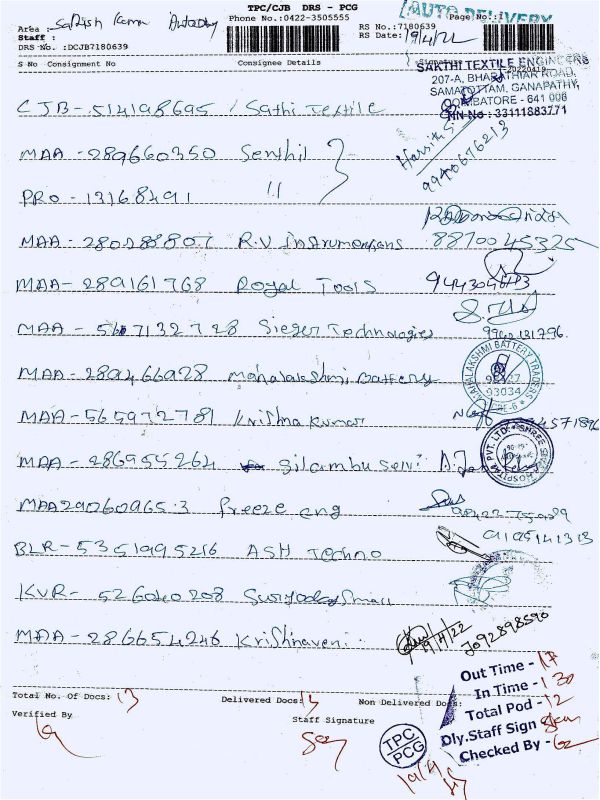 TPC/CJB DRS - PCG
Phone No.:0422-3505555
AUTO DELIVERY
Page No.:1
Area : Sathish Kumar
Staff :
DRS No. :DCJB7180639
RS No.:7180639
RS Date: 19/4/22
S No Consignment No Consignee Details Signature
SAKTHI TEXTILE ENGINEERS
207-A, BHARATHIAR ROAD,
SAMATOTTAM, GANAPATHY,
COIMBATORE - 641 006
CJB-514198695 / Sathi Textile
Harsith S
9940676213
MAA - 289660350 Senthil
PRO - 13168491 "
MAA - R.V Instrumentions 8870045325
MAA - 289161768 Royal Tools
MAA - Sieger Technologies
MAHALAKSHMI BATTERY TRADERS
93034
MAA - 289466928 Mahalakshmi Battery
MAA - 565972781 Krishna Kumar
MAA - 286955264 Silambu Selvi
HOSPITAL PVT. LTD.
MAA290609653 freeze eng
BLR - 5351995216 ASH Techno
KVR - 526040208
MAA - 286654246 Krishnaveni
19/4/22
Total No. Of Docs: 13 Delivered Docs: Non Delivered Docs:
Verified By Staff Signature
Out Time -
In Time - 1 30
Total Pod - 12
Dly.Staff Sign
Checked By -
TPC
PCG
19/4